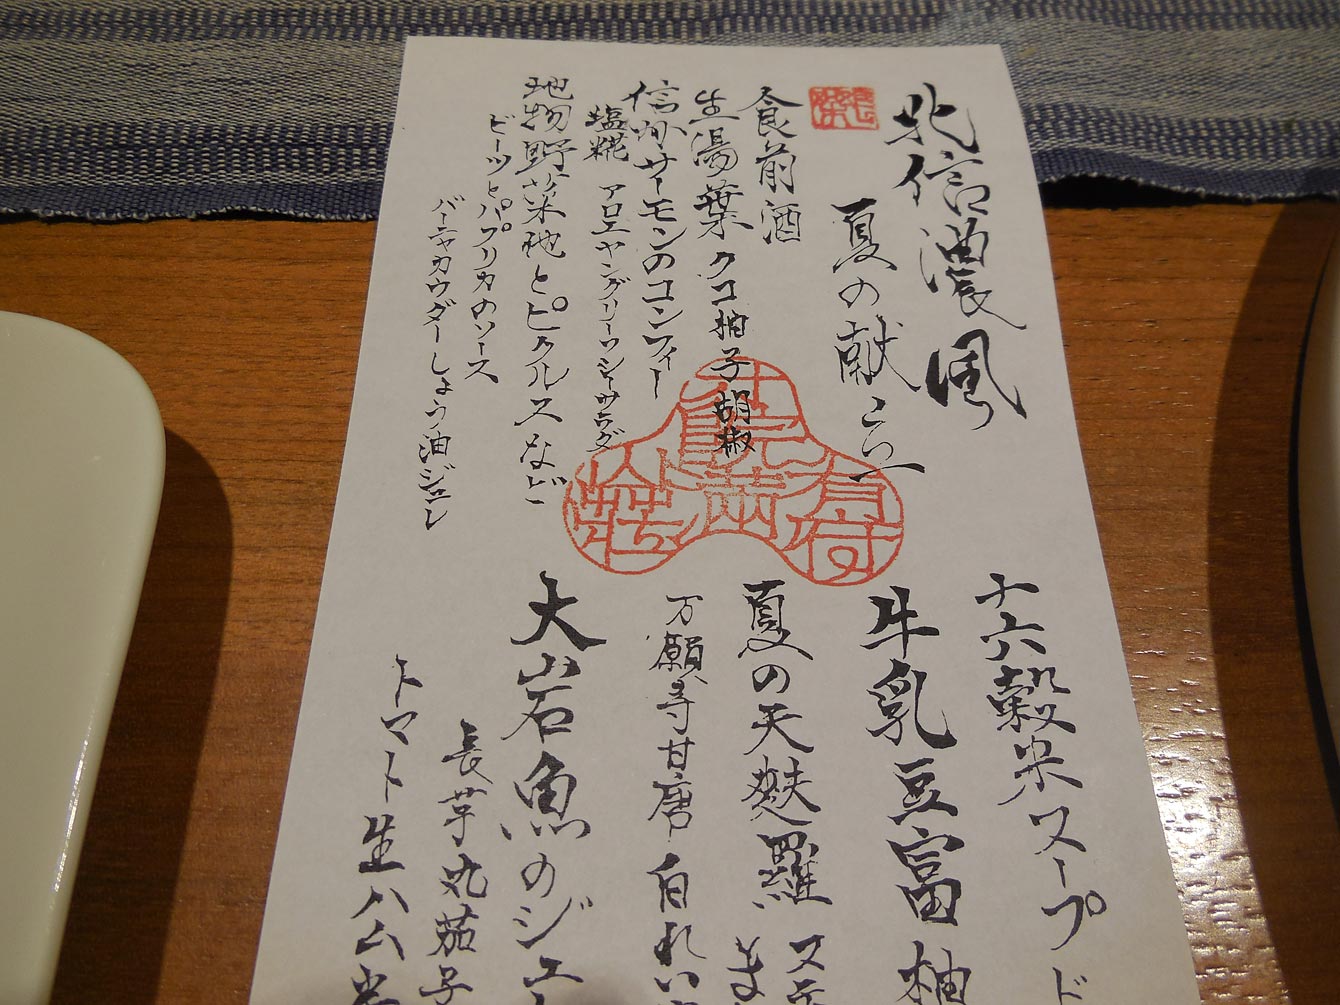 北信濃風
夏の献立
食前酒
生湯葉 クコ 柚子胡椒
信州サーモンのコンフィー
塩糀 アロエヤングリーフシーザーサラダ
地物野菜他とピクルスなど
ビーツとパプリカのソース
バーニャカウダーしょう油ジュレ
十六穀米スープ
牛乳豆富 柚
夏の天麩羅
万願寺甘唐
大岩魚のジュ
長芋丸茄子
トマト生ハム